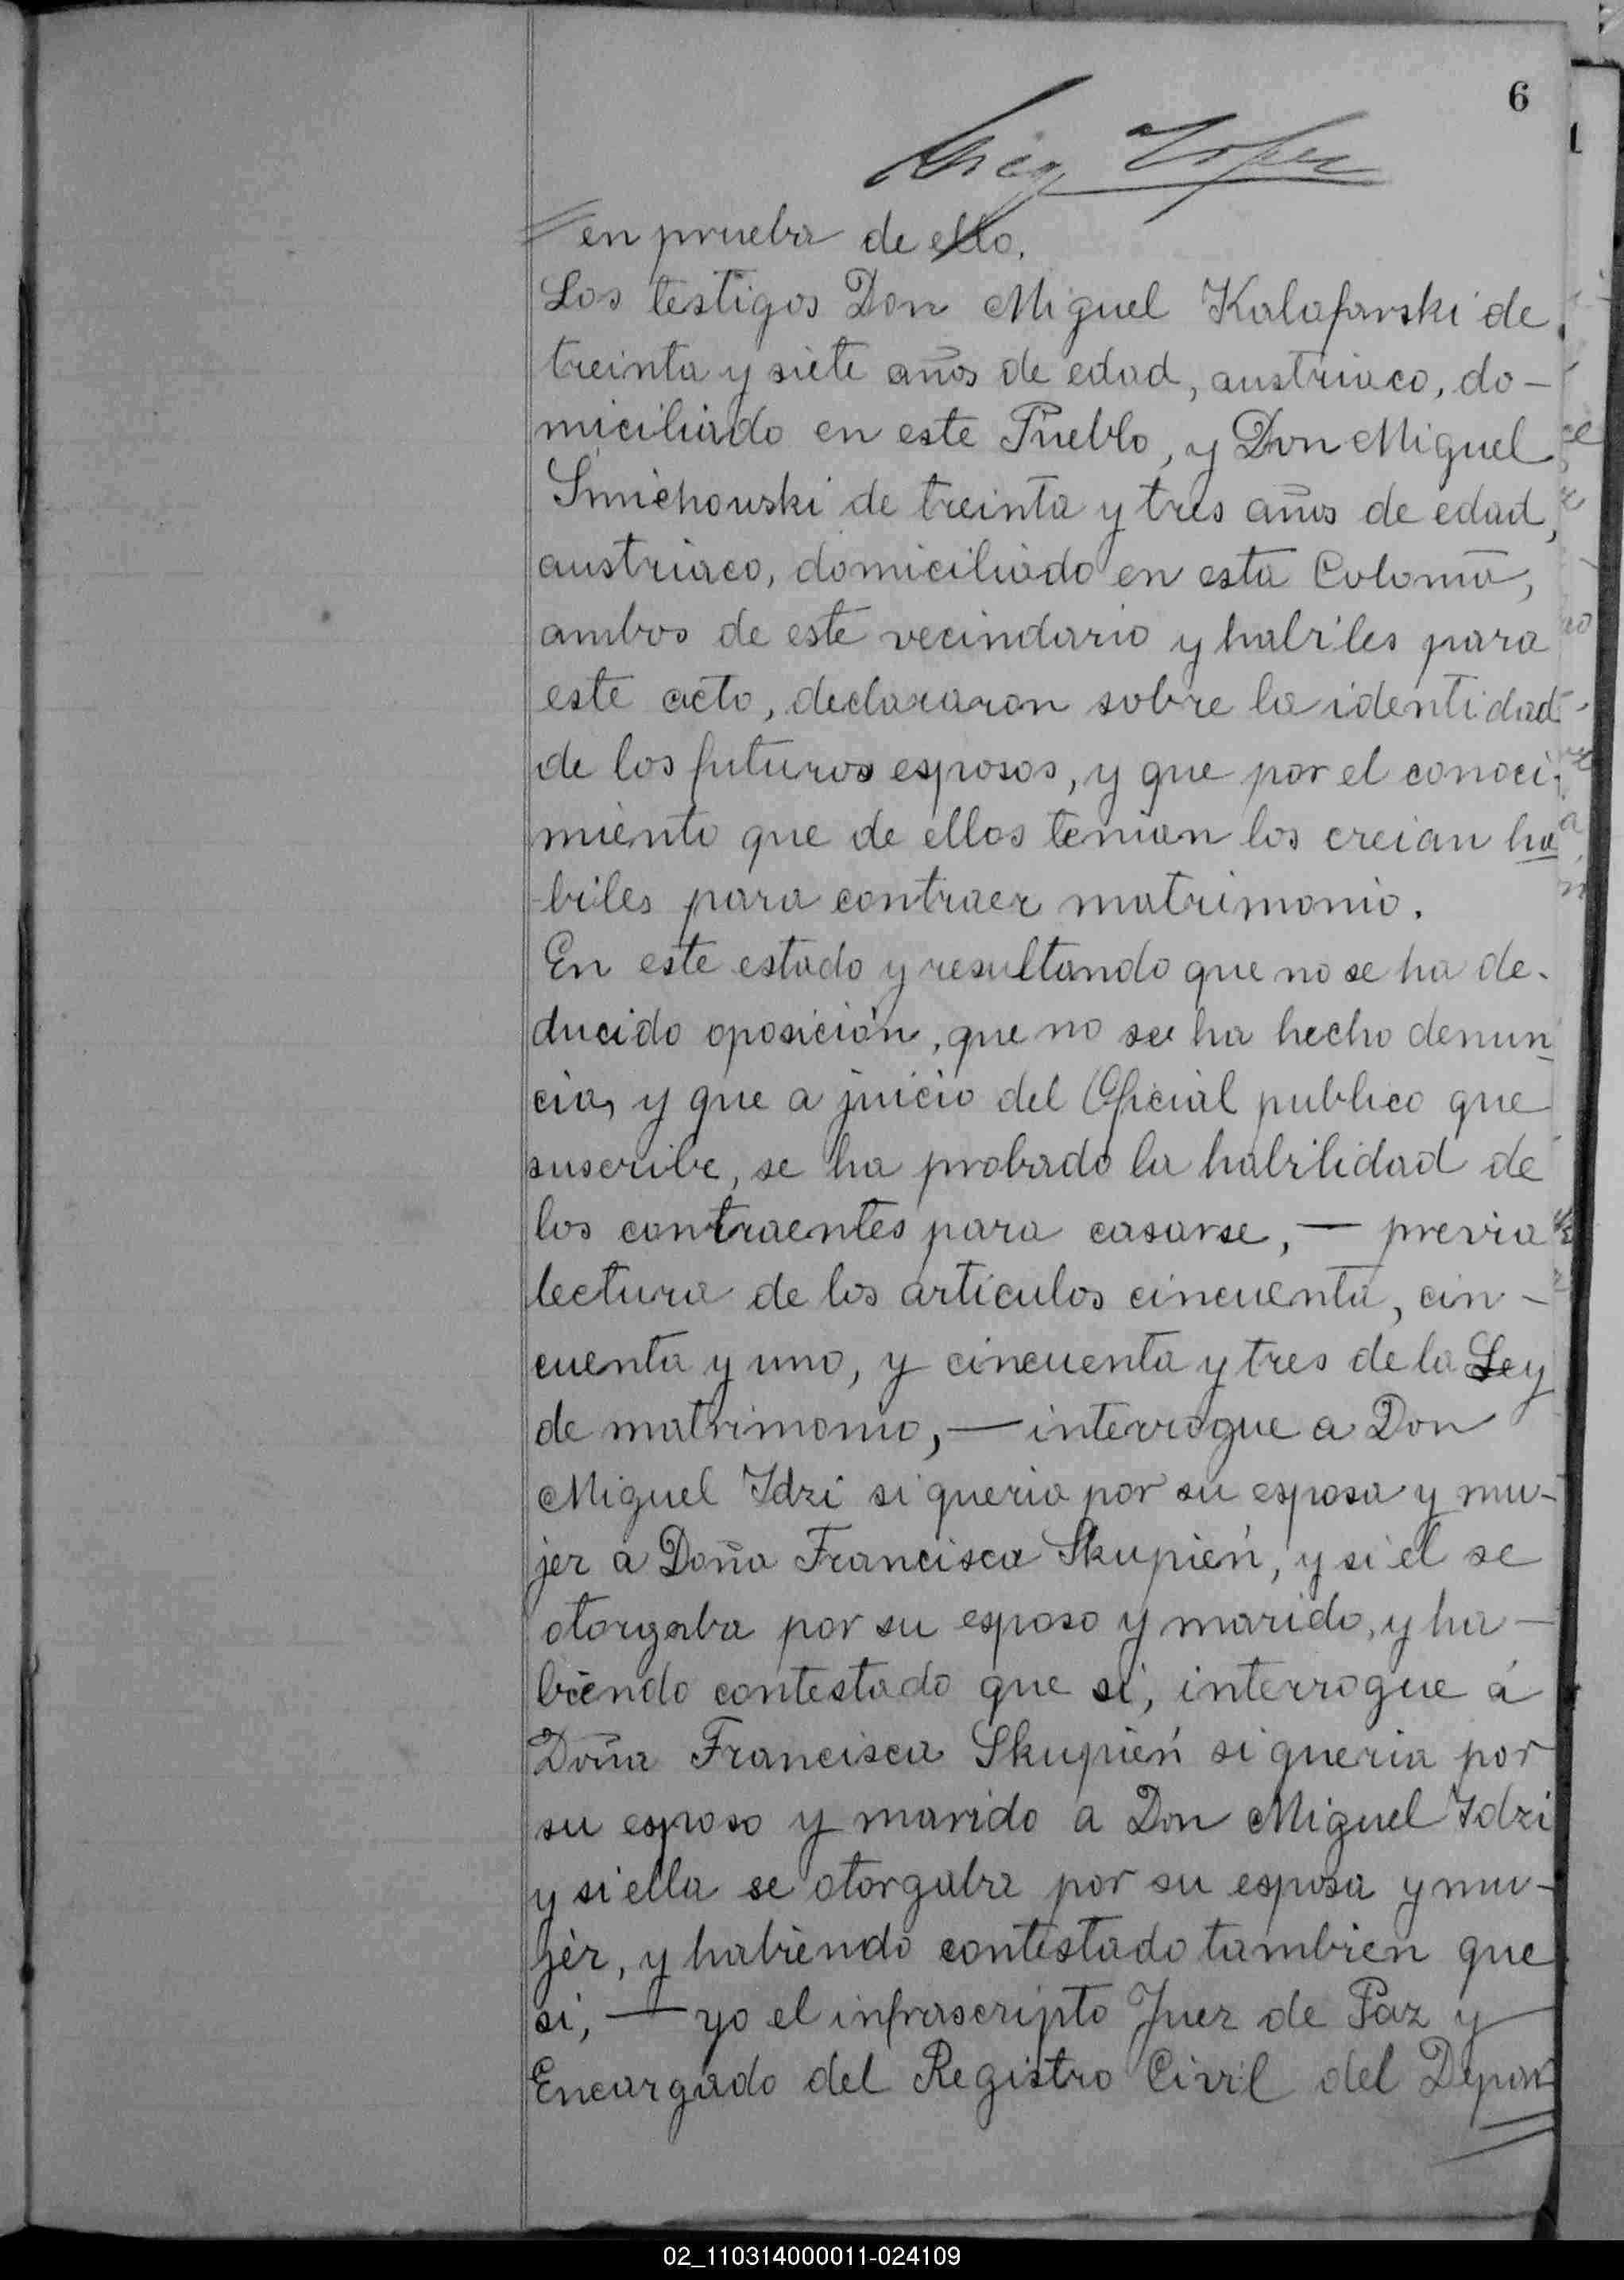 6
en prueba de ello.
Los testigos Don Miguel Kalafarski de
treinta y siete años de edad, austriaco, do-
miciliado en este Pueblo, y Don Miguel
Smichowski de treinta y tres años de edad,
austriaco, domiciliado en esta Colonia,
ambos de este vecindario y habiles para
este acto, declararon sobre la identidad
de los futuros esposos, y que por el conoci-
miento que de ellos tenian los creian ha
biles para contraer matrimonio.
En este estado y resultando que no se ha de-
ducido oposición, que no se ha hecho denun
cia, y que a juicio del Oficial publico que
suscribe, se ha probado la habilidad de
los contraentes para casarse, — previa
lectura de los articulos cincuenta, cin-
cuenta y uno, y cincuenta y tres de la Ley
de matrimonio, — interrogue a Don
Miguel Idzi si queria por su esposa y mu-
jer a Doña Francisca Skupień, y si él se
otorgaba por su esposo y marido, y ha-
biendo contestado que si, interrogue á
Doña Francisca Skupień si queria por
su esposo y marido a Don Miguel Idzi
y si ella se otorgaba por su esposa y mu-
jer, y habiendo contestado tambien que
si, — yo el infrascripto Juez de Paz y
Encargado del Registro Civil del Depar
02_110314000011-024109